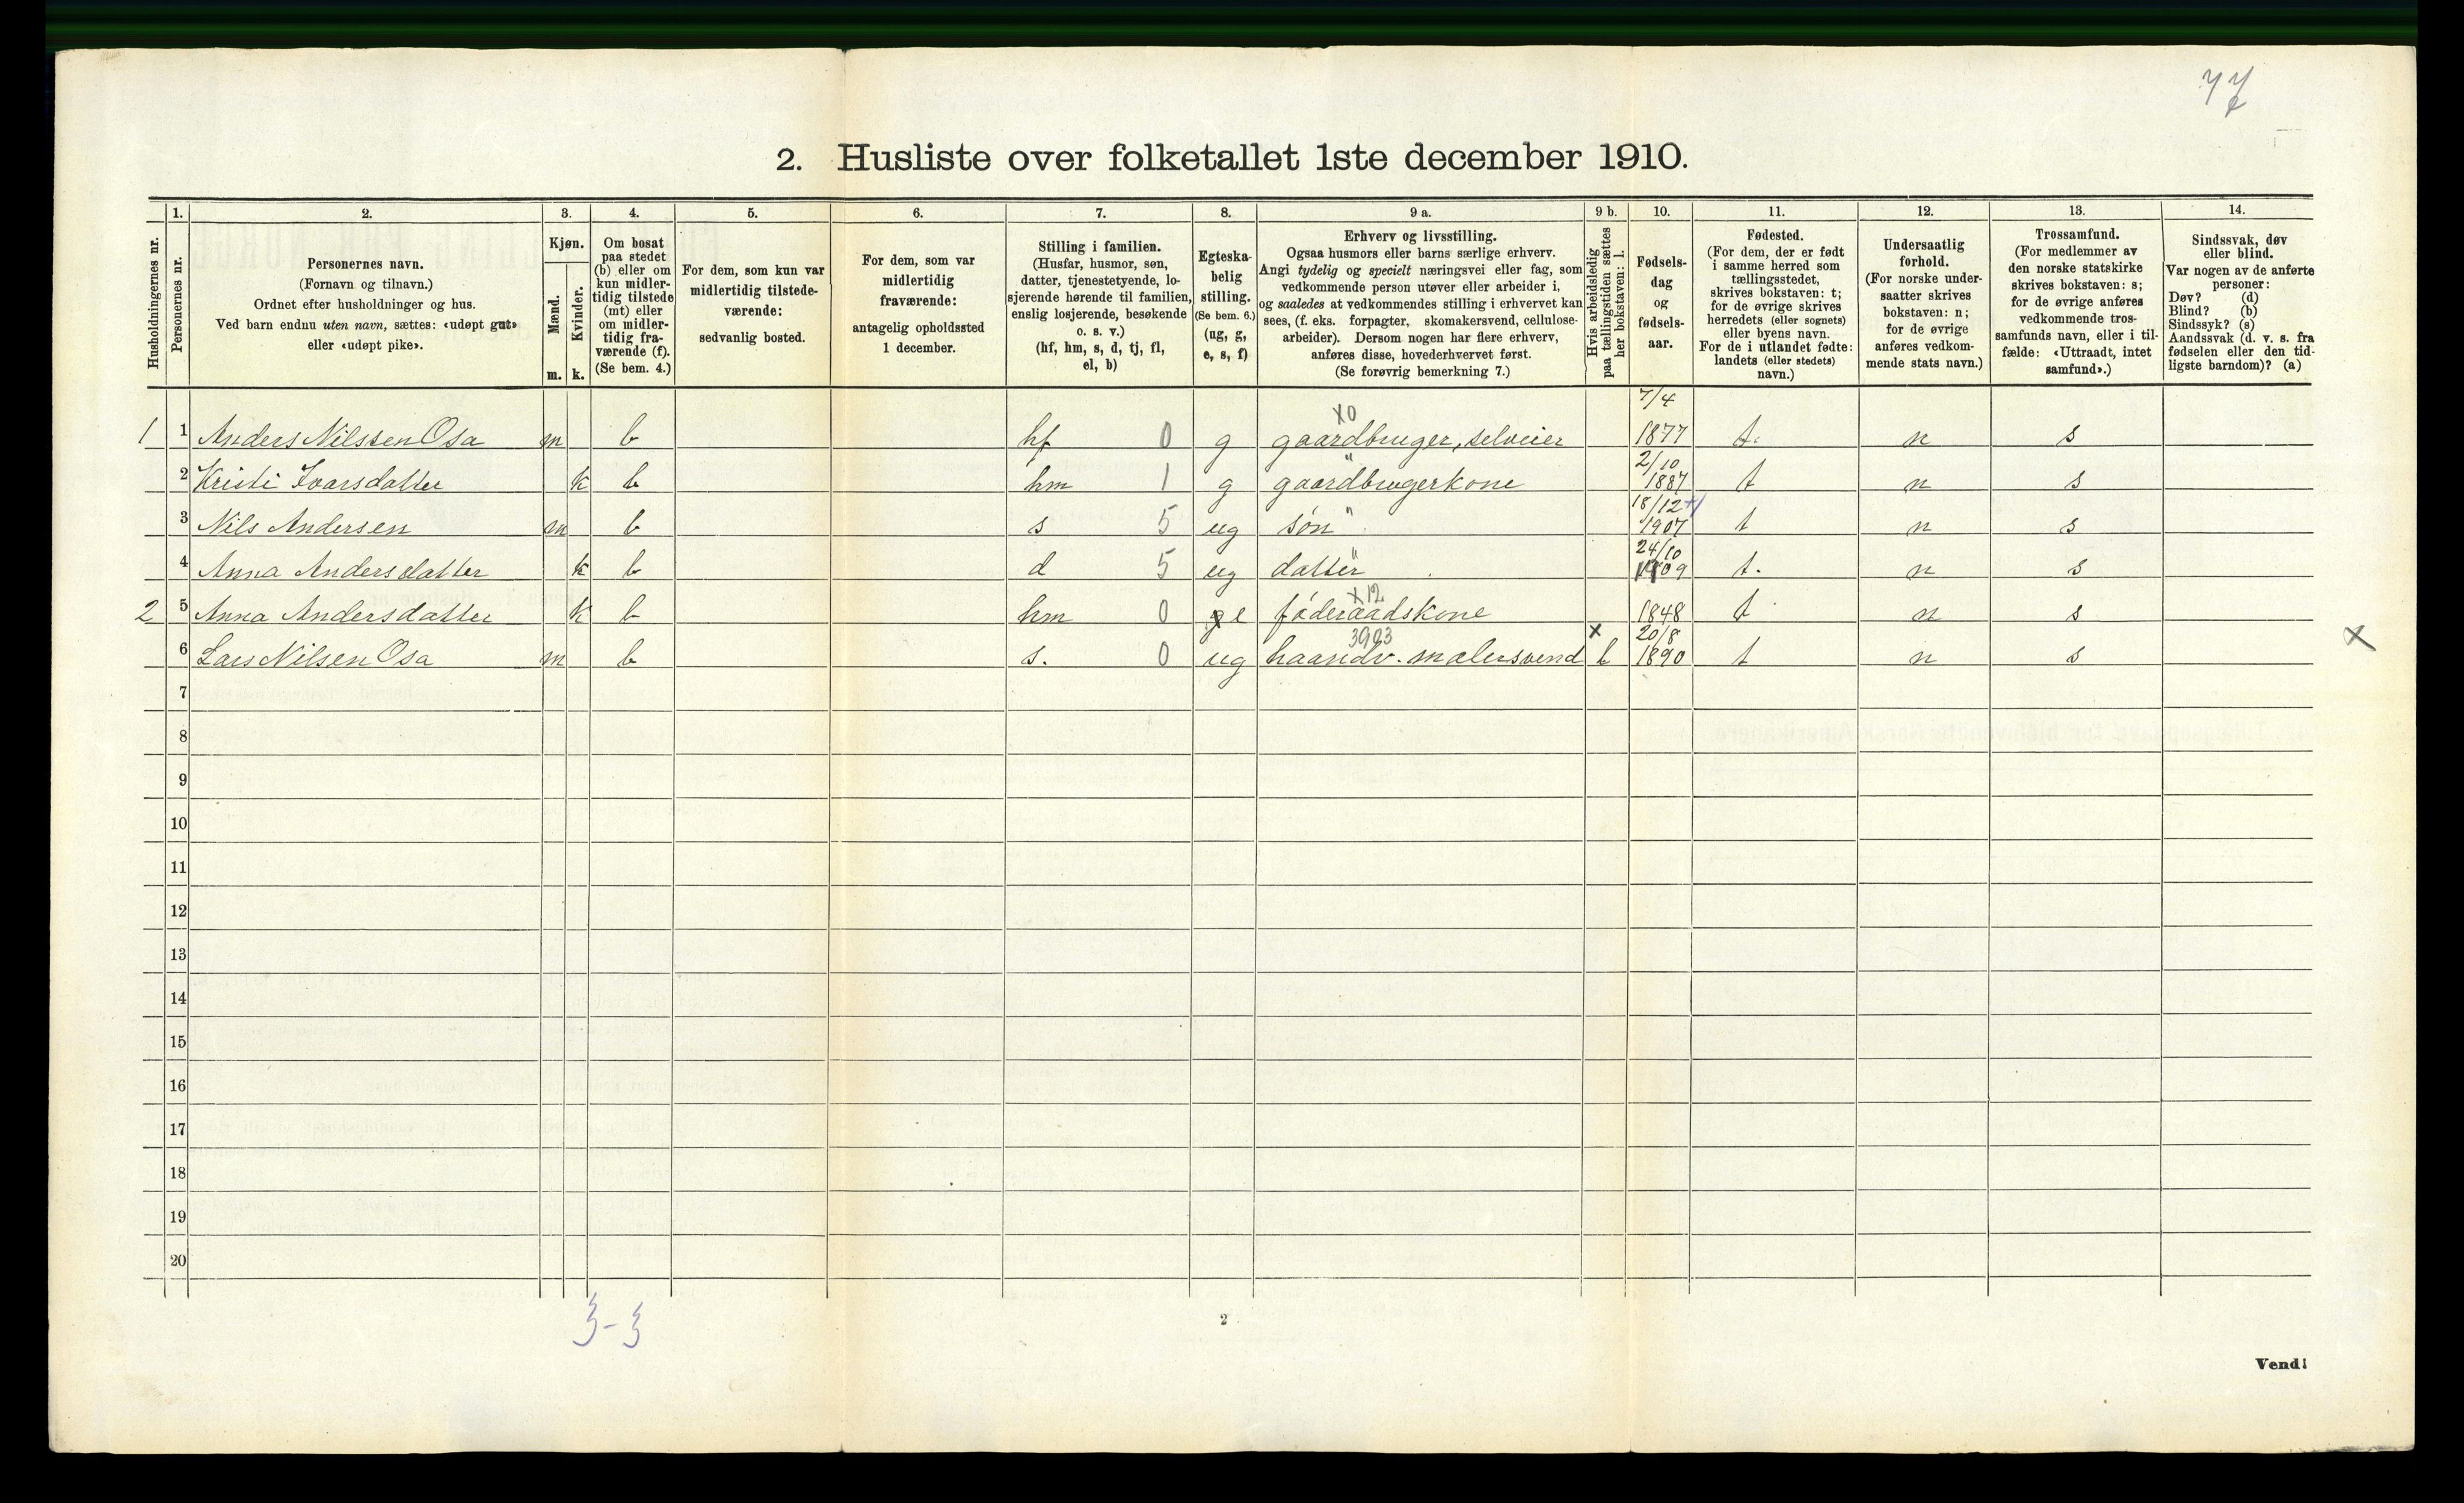 77
2. Husliste over folketallet 1ste december 1910.
Husholdningernes nr.
1.
Personernes nr.
2.
Personernes navn.
(Fornavn og tilnavn.)
Ordnet efter husholdninger og hus.
Ved barn endnu uten navn, sættes: «udøpt gut»
eller «udøpt pike».
3.
Kjøn.
Mænd.
Kvinder.
m. k.
4.
Om bosat
paa stedet
(b) eller om
kun midler-
tidig tilstede
(mt) eller
om midler-
tidig fra-
værende (f).
(Se bem. 4.)
5.
For dem, som kun var
midlertidig tilstede-
værende:
sedvanlig bosted.
6.
For dem, som var
midlertidig
fraværende:
antagelig opholdssted
1 december.
7.
Stilling i familien.
(Husfar, husmor, søn,
datter, tjenestetyende, lo-
sjerende hørende til familien,
enslig losjerende, besøkende
o. s. v.)
(hf, hm, s, d, tj, fl,
el, b)
8.
Egteska-
belig
stilling.
(Se bem. 6.)
(ug, g,
e, s, f)
9 a.
Erhverv og livsstilling.
Ogsaa husmors eller barns særlige erhverv.
Angi tydelig og specielt næringsvei eller fag, som
vedkommende person utøver eller arbeider i,
og saaledes at vedkommendes stilling i erhvervet kan
sees, (f. eks. forpagter, skomakersvend, cellulose-
arbeider). Dersom nogen har flere erhverv,
anføres disse, hovederhvervet først.
(Se forøvrig bemerkning 7.)
9 b.
Hvis arbeidsledig
paa tællingstiden sættes
her bokstaven: l.
10.
Fødsels-
dag
og
fødsels-
aar.
11.
Fødested.
(For dem, der er født
i samme herred som
tællingsstedet,
skrives bokstaven: t;
for de øvrige skrives
herredets (eller sognets)
eller byens navn.
For de i utlandet fødte:
landets (eller stedets)
navn.)
12.
Undersaatlig
forhold.
(For norske under-
saatter skrives
bokstaven: n;
for de øvrige
anføres vedkom-
mende stats navn.)
13.
Trossamfund.
(For medlemmer av
den norske statskirke
skrives bokstaven: s;
for de øvrige anføres
vedkommende tros-
samfunds navn, eller i til-
fælde: «Uttraadt, intet
samfund».)
14.
Sindssvak, døv
eller blind.
Var nogen av de anførte
personer:
Døv? (d)
Blind? (b)
Sindssyk? (s)
Aandssvak (d. v. s. fra
fødselen eller den tid-
ligste barndom)? (a)
X0 7/4
1 1 Anders Nilssen Osa m b hf 0 g gaardbruger, selveier 1877 t. n s
" 2/10
2 Kristi Ivarsdatter k b hm 1 g gaardbrugerkone 1887 t n s
18/12
3 Nils Andersen m b s 5 ug søn " 1907 t n s
24/10
4 Anna Andersdatter k b d 5 ug datter " 1909 t. n s
X12
2 5 Anna Andersdatter k b hm 0 e føderaadskone 1848 t n s
3903 x 20/8 x
6 Lars Nilsen Osa m b s. 0 ug haandv. malersvend l 1890 t n s
7
8
9
10
11
12
13
14
15
16
17
18
19
20
3-3
2
Vend!